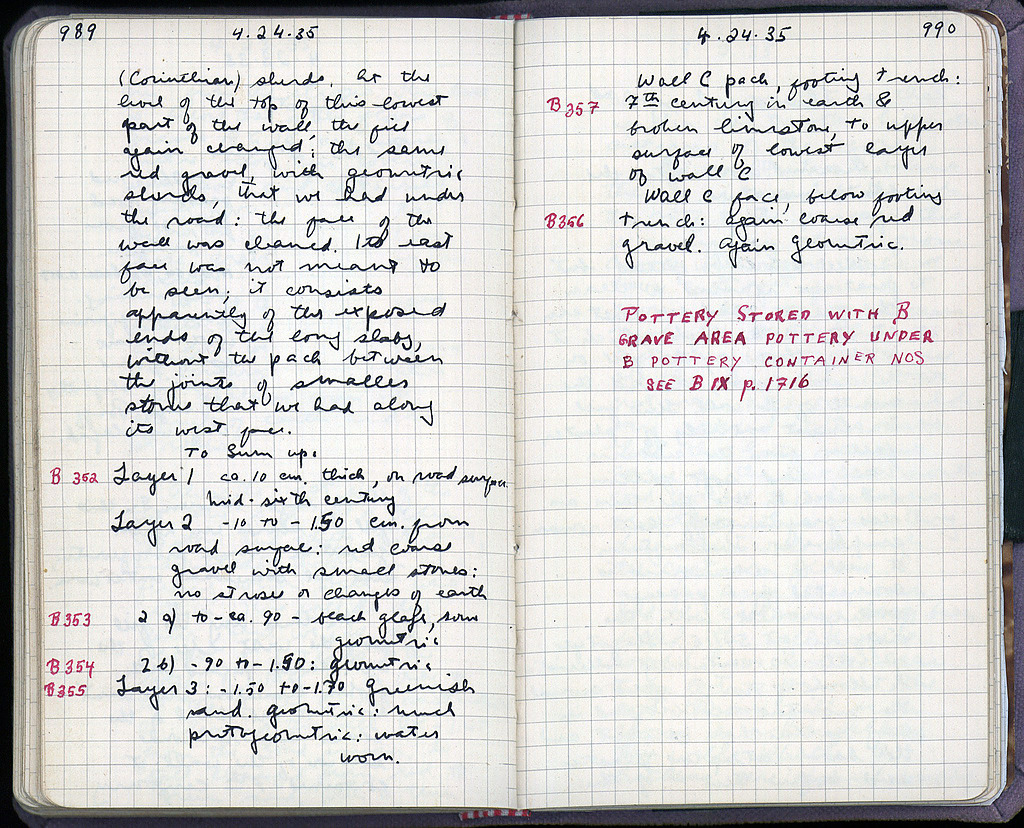 989
4.24.35
(Corinthian) sherds. At the
level of the top of this lowest
part of the wall, the fill
again changed; the same
red gravel, with geometric
sherds, that we had under
the road: the face of the
wall was cleaned. Its east
face was not meant to
be seen; it consists
apparently of the exposed
ends of the long slabs,
without the pack between
the joints of smaller
stones that we had along
its west face.
To Sum up:
B 352 Layer 1 ca. 10 cm. thick, on road surface.
Mid-sixth century
Layer 2 -10 to -1.50 cm. from
road surface: red coarse
gravel with small stones:
no stroses or changes of earth
B353 2 a) to -ca. 90 - beach glass, some
geometric
B354 2 b) -90 to -1.50: geometric
B355 Layer 3: -1.50 to -1.70 greenish
sand. geometric: much
protogeometric: water
worn.
4.24.35
990
Wall C pack, footing trench:
B357 7th century in earth &
broken limestone, to upper
surface of lowest layer
of wall C
Wall C face, below footing
B356 trench: again coarse red
gravel. Again Geometric.
POTTERY STORED WITH B
GRAVE AREA POTTERY UNDER
B POTTERY CONTAINER NOS
SEE B IX p. 1716